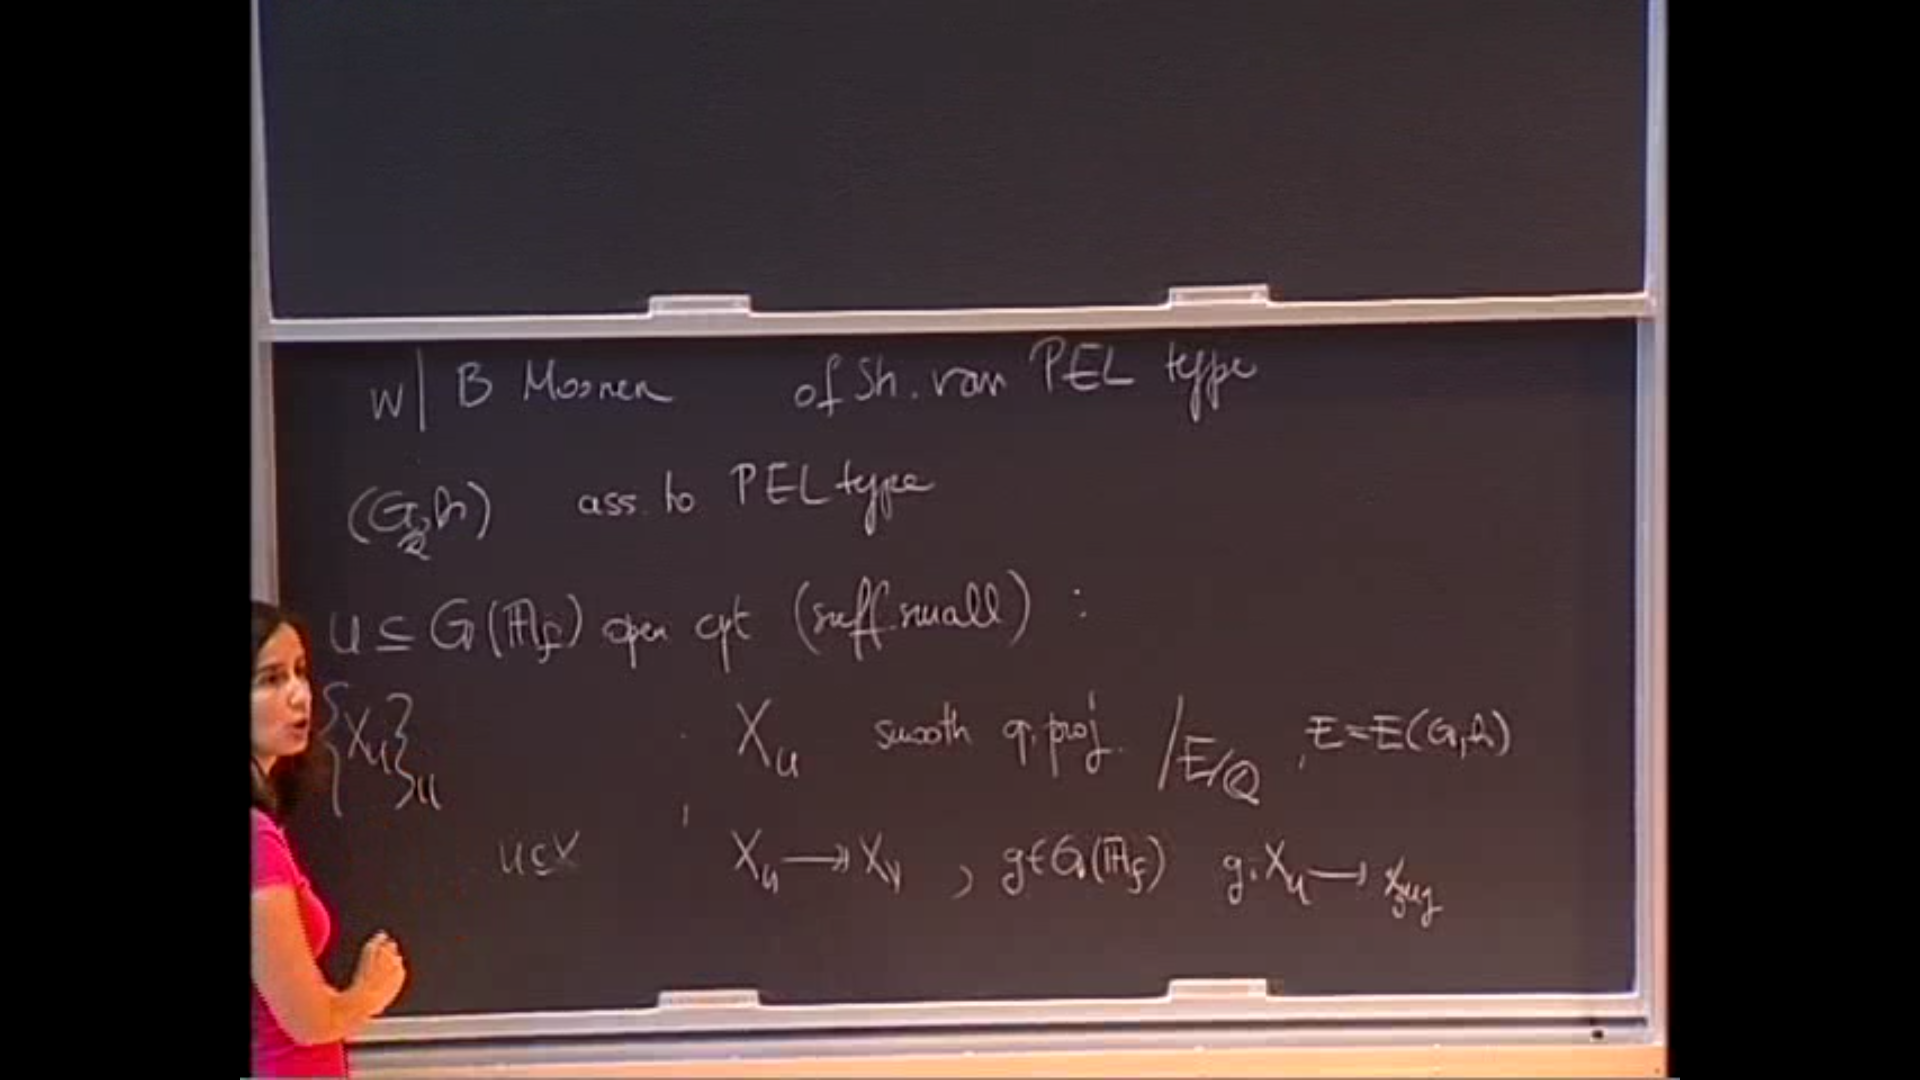 w/ B Moonen of Sh. var PEL type
(G_Q, h) ass. to PEL type
U ⊆ G(𝔸_f) open cpt (suff. small) :
{X_U}_U X_U smooth q. proj. /E/ℚ , E=E(G,h)
U⊆V X_U ↠ X_V , g∈G(𝔸_f) g: X_U → X_gUg